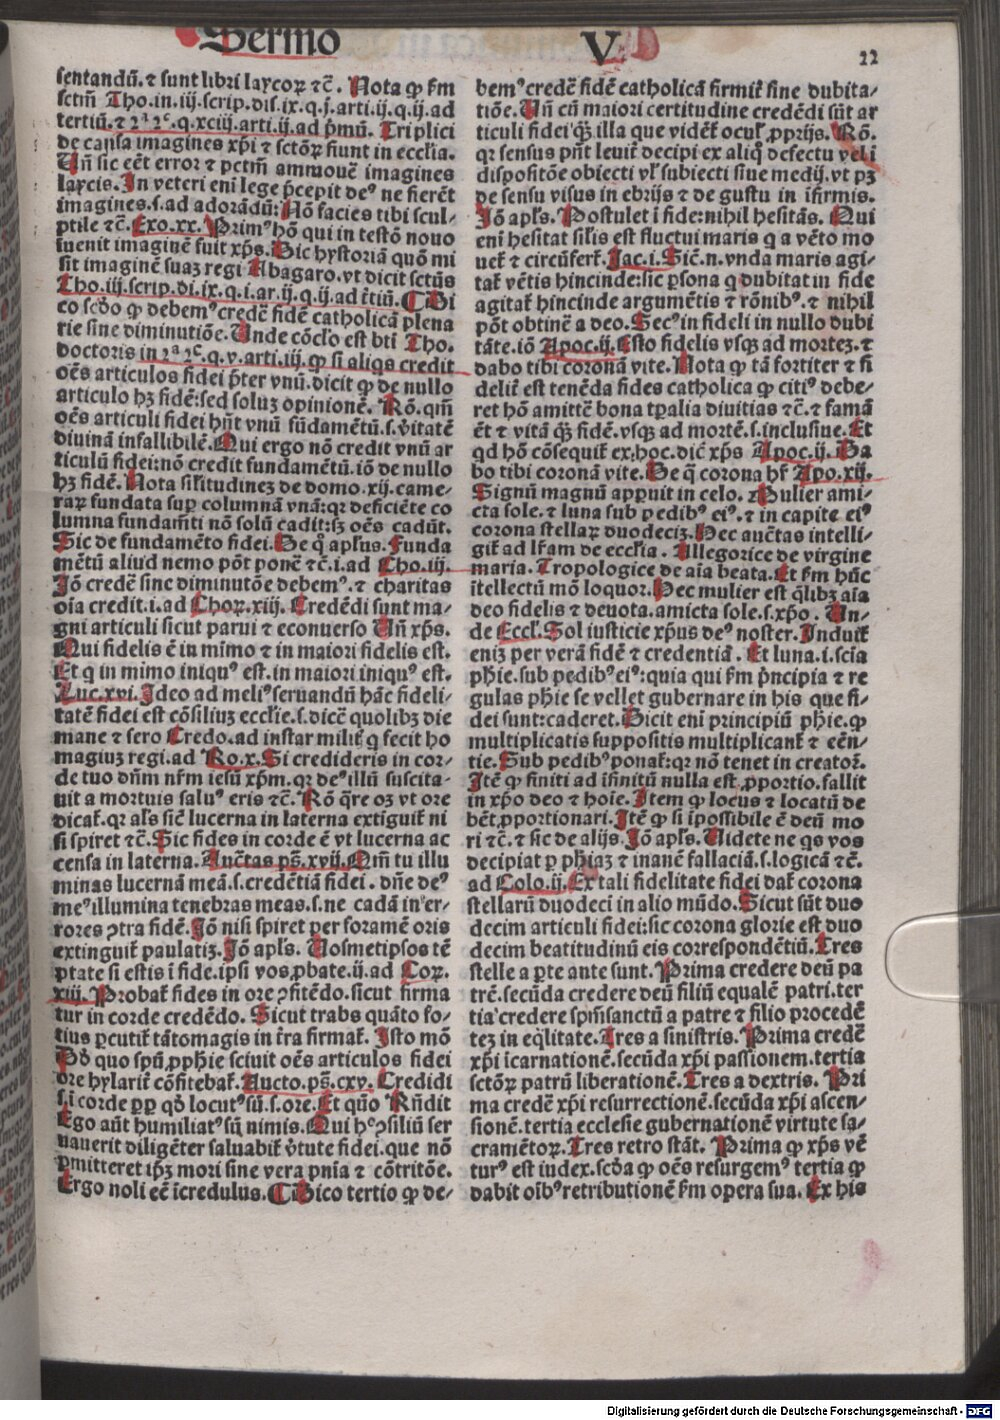 Sermo V
22
sentandū. ⁊ sunt libri laycoꝝ ⁊c̄. Nota ꝙ s̄m
sctm̄ Tho. in .iij. scrip. dis. ix. q. j. arti. ij. q. ij. ad
tertiū. ⁊ 2ᵃ 2ᵉ. q. xciij. arti. ij. ad pͥmū. Triplici
de causa imagines xp̄i ⁊ sctōꝝ fiunt in eccl̄ia.
Un̄ sic eēt error ⁊ pctm̄ ammouē imagines
laycis. In veteri eni lege p̄cepit deꝰ ne fierēt
imagines. s. ad adorādū: Nō facies tibi scul⸗
ptile ⁊c̄. Exo. xx. Primꝰ hō qui in testō nouo
iuenit imaginē fuit xp̄s. Sic hystoriā quō mi
sit imaginē suaꝫ regi Abagaro. vt dicit sctūs
Tho. iij. scrip. di. ix. q. i. ar. ij. q. ij. ad t̄tiū. ¶ Di
co scd̄o ꝙ debemꝰ credē fidē catholicā plena
rie sine diminutiōe. Unde cōcl̄o est bti̅ Tho.
doctoris in 2ᵃ 2ᵉ. q. v. arti. iij. ꝙ si aliqs credit
oēs articulos fidei p̄ter vnū. dicit ꝙ de nullo
articulo hꝫ fidē: sed soluꝫ opinionē. Rō. qm̄
oēs articuli fidei hn̄t vnū fūdamētū. s. v̄itatē
diuinā infallibilē. Qui ergo nō credit vnū ar
ticulū fidei: nō credit fundamētū. iō de nullo
hꝫ fidē. Nota sil̄itudineꝫ de domo. xij. came⸗
raꝝ fundata sup columnā vnā: qꝛ deficiēte co
lumna fundam̄ti nō solū cadit: sꝫ oēs cadūt.
Sic de fundamēto fidei. De q̊ apl̄us. Funda
mētū aliud nemo pōt ponē ⁊c̄. i. ad Cho. iij.
Iō credē sine diminutōe debemꝰ. ⁊ charitas
oīa credit. i. ad Choꝝ. xiij. Credēdi sunt ma⸗
gni articuli sicut parui ⁊ econuerso Un̄ xp̄s.
Qui fidelis ē in mimo ⁊ in maiori fidelis est.
Et q in mimo iniqꝰ est. in maiori iniqꝰ est.
Luc. xvi. Ideo ad meliꝰ seruandū hāc fideli⸗
tatē fidei est cōsiliuꝫ eccl̄ie. s. dicē quolibꝫ die
mane ⁊ sero Credo. ad instar milit̄ q fecit ho
magiuꝫ regi. ad Ro. x. Si credideris in cor⸗
de tuo dn̄m nr̄m iesū xp̄m. qꝛ deꝰ illū suscita⸗
uit a mortuis saluꝰ eris ⁊c̄. Rō q̄re oꝫ vt ore
dicat̄. qꝛ als̄ sic̄ lucerna in laterna extiguit̄ ni
si spiret ⁊c̄. Sic fides in corde ē vt lucerna ac
censa in laterna. Auc̄tas ps̄. xvij. Qm̄ tu illu
minas lucernā meā. s. credētiā fidei. dn̄e deꝰ
meꝰ illumina tenebras meas. s. ne cadā in er⸗
rores ꝯtra fidē. Iō nisi spiret per foramē oris
extinguit̄ paulatiꝫ. Iō apl̄s. Uosmetipsos tē
ptate si estis ī fide. ipsi vos ꝓbate. ij. ad Coꝝ.
xiij. Probat̄ fides in ore ꝯfitēdo. sicut firma
tur in corde credēdo. Sicut trabs quāto fo⸗
tius ꝑcutit̄ tātomagis in t̄ra firmat̄. Isto mō
Dd̄ quo spū ꝓphīe sciuit oēs articulos fidei
ore hylarit̄ cōfitebat̄. Aucto. ps̄. cxv. Credidi
s. ī corde ꝓp qd̄ locutꝰ sū. s. ore. Et quō Rn̄dit
Ego aūt humiliatꝰ sū nimis. Qui hͦ ꝯsiliū ser
uauerit diligēter saluabit̄ v̄tute fidei. que nō
ꝑmitteret ip̄ꝫ mori sine vera pn̄ia ⁊ cōtritōe.
Ergo noli eē icredulus. ¶ Dico tertio ꝙ de⸗
bemꝰ credē fidē catholicā firmit̄ sine dubita⸗
tiōe. Un̄ cū maiori certitudine credēdi sūt ar
ticuli fidei q̄ꝫ illa que vidēt̄ ocul̄ ꝓprijs. Rō.
qꝛ sensus pn̄t leuit̄ decipi ex aliq̊ defectu vel i
dispositōe obiecti vl̄ subiecti siue medij. vt pꝫ
de sensu visus in ebrijs ⁊ de gustu in īfirmis.
Iō apl̄s. Postulet ī fide: nihil hesitās. Qui
eni hesitat sil̄is est fluctui maris q a vēto mo
uet̄ ⁊ circūfert̄. Jac. i. Sic̄. n. vnda maris agi⸗
tat̄ vētis hincinde: sic ꝑsona q dubitat in fide
agitat̄ hincinde argumētis ⁊ rōnibꝰ. ⁊ nihil
pōt obtinē a deo. Secꝰ in fideli in nullo dubi
tāte. iō Apoc. ij. Esto fidelis vsqꝫ ad morteꝫ. ⁊
dabo tibi coronā vite. Nota ꝙ tā fortiter ⁊ fi
delit̄ est tenēda fides catholica ꝙ citiꝰ debe⸗
ret hō amittē bona tp̄alia diuitias ⁊c̄. ⁊ famā
ēt ⁊ vitā q̄ꝫ fidē. vsqꝫ ad mortē. s. inclusiue. Et
qd hō cōsequit̄ ex hoc. dic̄ xp̄s Apoc. ij. Da
bo tibi coronā vite. De q̄ corona hr̄ Apo. xij.
Signū magnū apparuit in celo. Mulier ami⸗
cta sole. ⁊ luna sub pedibꝰ eiꝰ. ⁊ in capite eiꝰ
corona stellaꝝ duodeciꝫ. Hec auc̄tas intelli⸗
git̄ ad lr̄am de eccl̄ia. Allegorice de virgine
maria. Tropologice de aīa beata. Et s̄m hūc
itellectū mō loquor. Hec mulier est q̄libꝫ aīa
deo fidelis ⁊ deuota. amicta sole. s. xp̄o. Un⸗
de Eccl̄. Sol iusticie xp̄us deꝰ noster. Induit̄
eniꝫ per verā fidē ⁊ credentiā. Et luna. i. scia
phīe. sub pedibꝰ eiꝰ: quia qui s̄m p̄ncipia ⁊ re
gulas phīe se vellet gubernare in his que fi⸗
dei sunt: caderet. Dicit eni principiū phīe. ꝙ
multiplicatis suppositis multiplicant̄ ⁊ eēn⸗
tie. Sub pedibꝰ ponat̄: qꝛ nō tenet in creatoꝛ.
Itē ꝙ finiti ad īfinitū nulla est ꝓportio. fallit
in xp̄o deo ⁊ hoīe. Item ꝙ locus ⁊ locatū de
bēt ꝓportionari. Itē ꝙ si ipossibile ē deū mo
ri ⁊c̄. ⁊ sic de alijs. Iō apl̄s. Uidete ne qs vos
decipiat ꝑ ph̄iaꝫ ⁊ inanē fallaciā. s. logicā ⁊c̄.
ad Colo. ij. Ex tali fidelitate fidei dat̄ corona
stellarū duodeci in alio mūdo. Sicut sūt duo
decim articuli fidei: sic corona glorie est duo
decim beatitudinū eis correspondētiū. Tres
stelle a ꝑte ante sunt. Prima credere deū pa
trē. secūda credere deū filiū equalē patri. ter
tia credere spīsanctū a patre ⁊ filio procedē
teꝫ in eq̄litate. Tres a sinistris. Prima credē
xp̄i icarnationē. secūda xp̄i passionem. tertia
sctōꝝ patrū liberationē. Tres a dextris. Pri
ma credē xp̄i resurrectionē. secūda xp̄i ascen⸗
sionē. tertia ecclesie gubernationē virtute sa⸗
cramētoꝝ. Tres retro stāt. Prima ꝙ xp̄s vē
turꝰ est iudex. scd̄a ꝙ oēs resurgemꝰ tertia ꝙ
dabit oībꝰ retributionē s̄m opera sua. Ex his
Digitalisierung gefördert durch die Deutsche Forschungsgemeinschaft - DFG